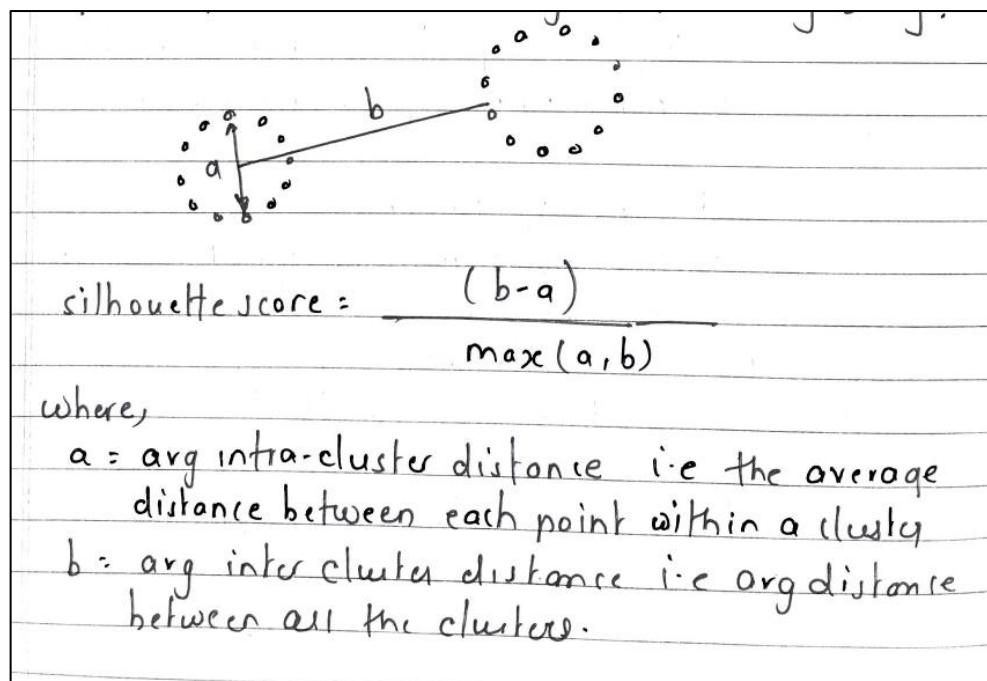 b
a
silhouette score = (b-a)
max (a,b)
where,
a = avg intra-cluster distance i.e the average
distance between each point within a cluster
b = avg inter cluster distance i.e avg distance
between all the clusters.